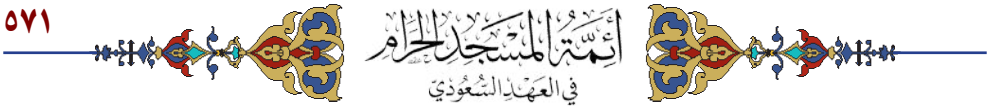 ٥٧١
أَئِمَّةُ المَسْجِدِ الحَرَامِ
فِي العَهْدِ السُّعُودِيِّ